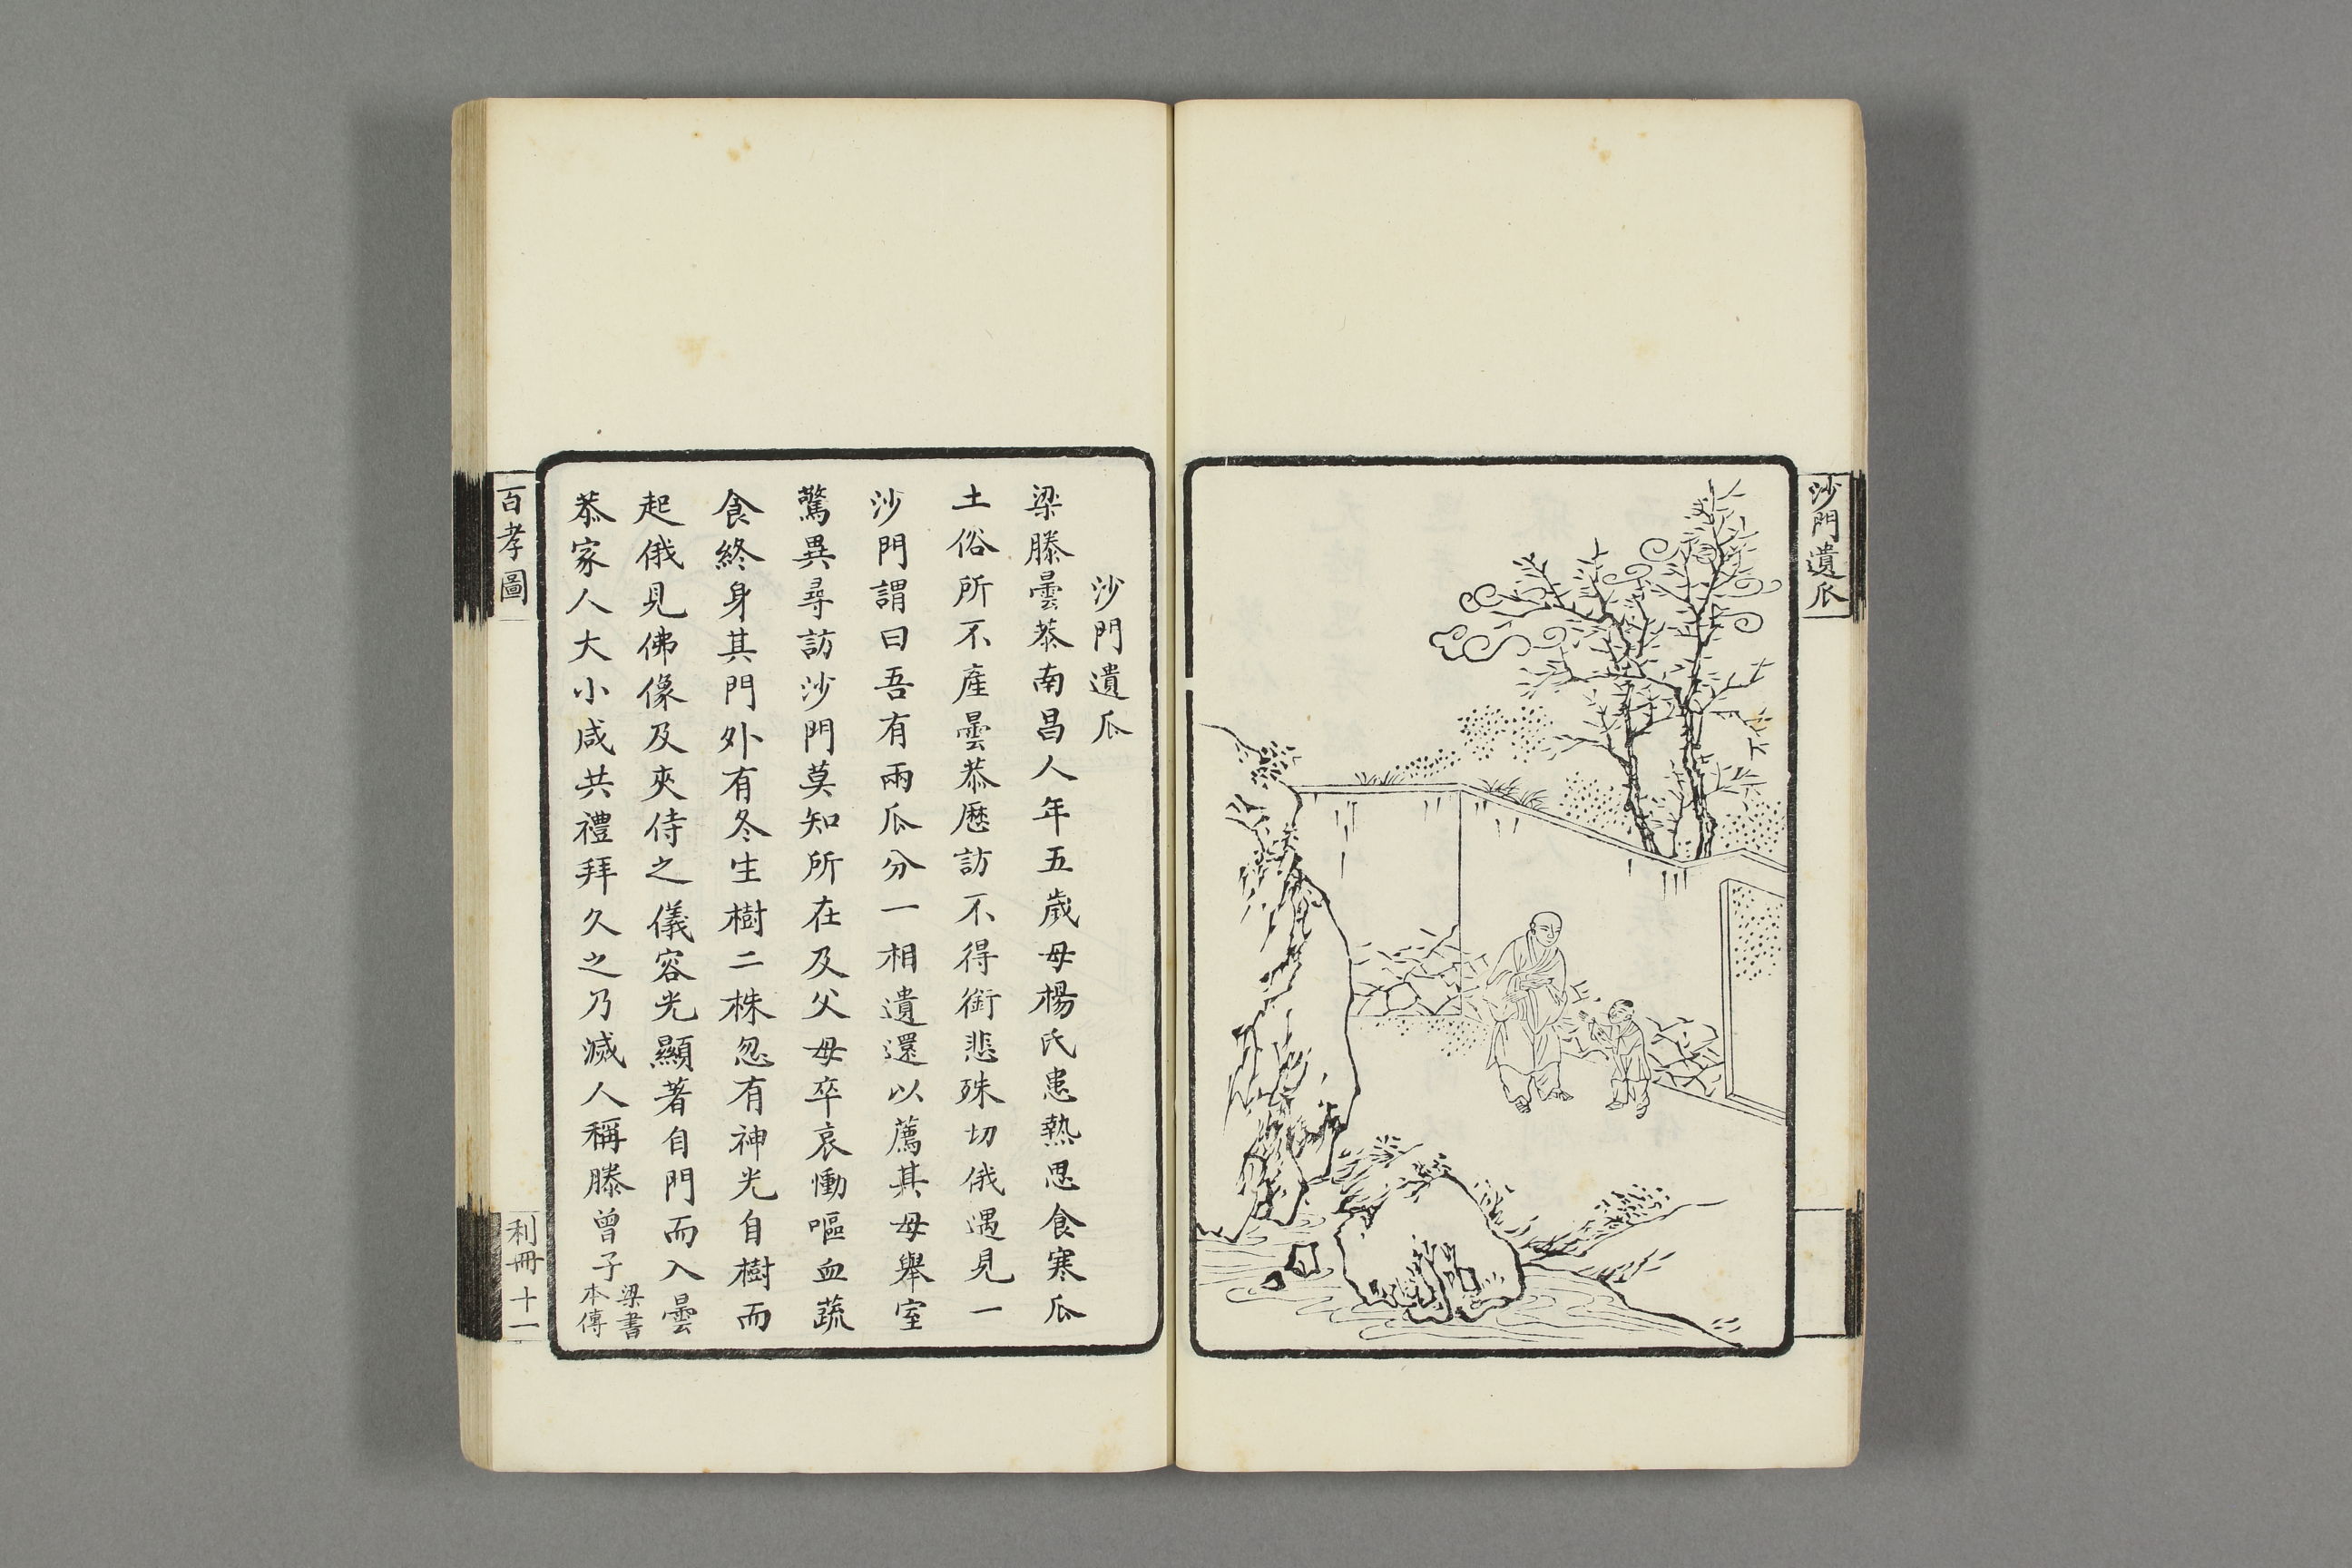 沙門遺瓜
沙門遺瓜
梁滕曇恭南昌人年五歲母楊氏患熱思食寒瓜
土俗所不產曇恭歷訪不得銜悲殊切俄遇見一
沙門謂曰吾有兩瓜分一相遺還以薦其母舉室
驚異尋訪沙門莫知所在及父母卒哀慟嘔血蔬
食終身其門外有冬生樹二株忽有神光自樹而
起俄見佛像及夾侍之儀容光顯著自門而入曇
恭家人大小咸共禮拜久之乃滅人稱滕曾子
梁書
本傳
百孝圖
利冊十一